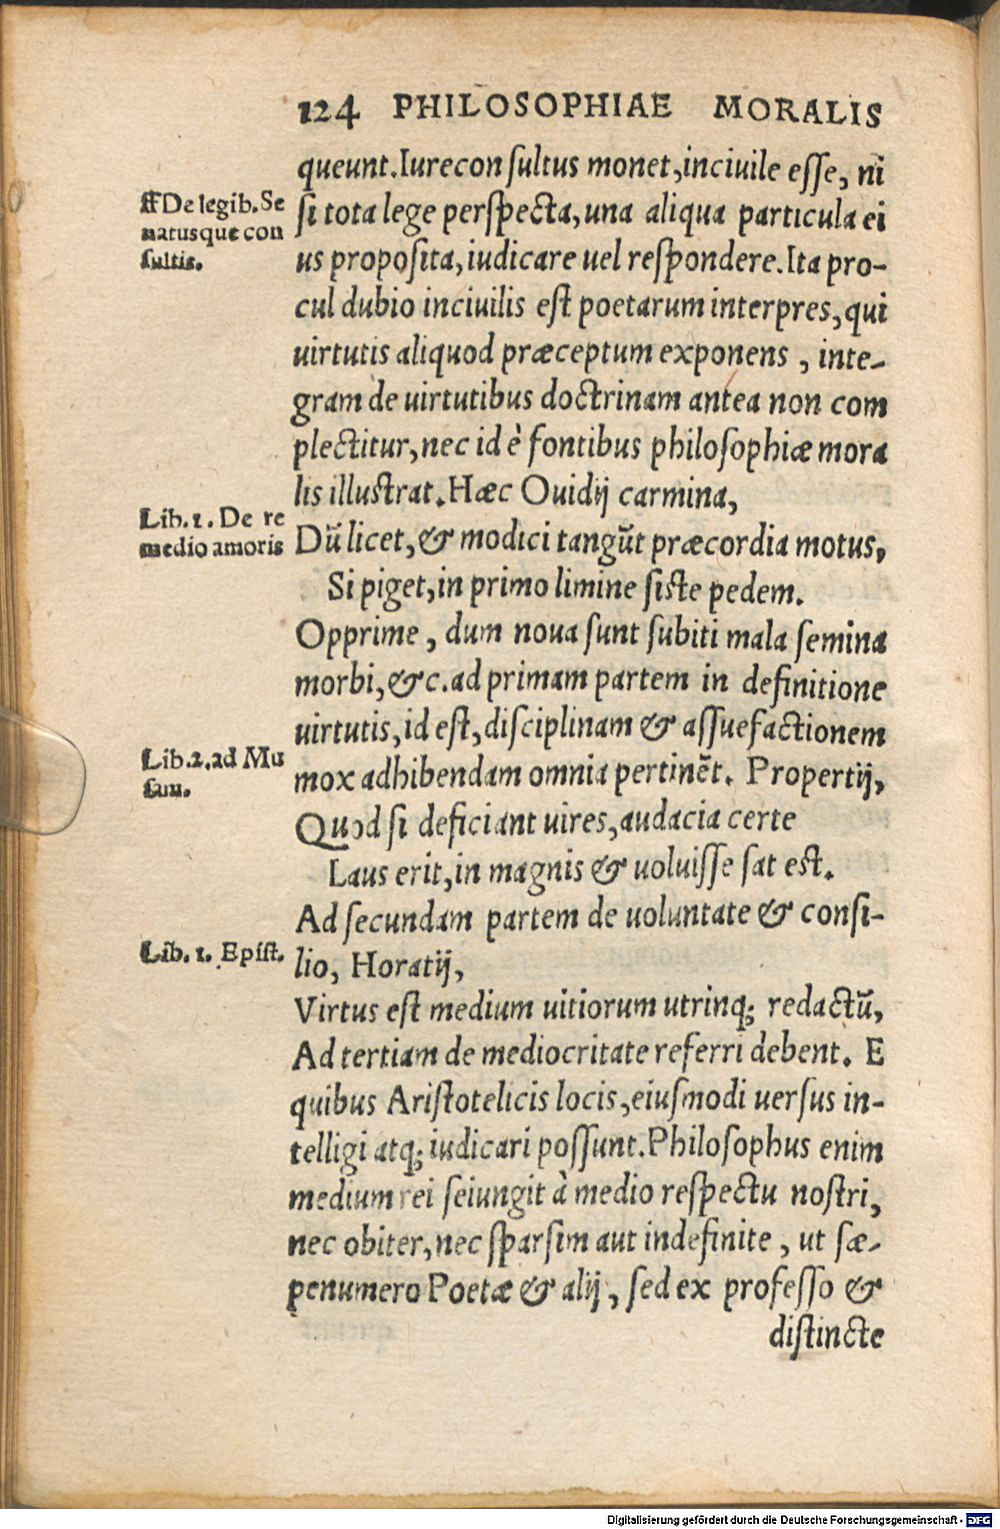 124 PHILOSOPHIAE MORALIS
queunt. Iurecon sultus monet, inciuile esse, ni
ff De legib. Se
natusque con
sultis.
si tota lege perspecta, una aliqua particula ei
us proposita, iudicare uel respondere. Ita pro-
cul dubio inciuilis est poetarum interpres, qui
uirtutis aliquod præceptum exponens, inte-
gram de uirtutibus doctrinam antea non com
plectitur, nec id è fontibus philosophiæ mora
lis illustrat. Hæc Ouidij carmina,
Lib. 1. De re
medio amoris
Dũ licet, & modici tangũt præcordia motus,
Si piget, in primo limine siste pedem.
Opprime, dum noua sunt subiti mala semina
morbi, &c. ad primam partem in definitione
uirtutis, id est, disciplinam & assuefactionem
Lib. 2. ad Mu
sam.
mox adhibendam omnia pertinẽt. Propertij,
Quod si deficiant uires, audacia certe
Laus erit, in magnis & uoluisse sat est.
Ad secundam partem de uoluntate & consi-
Lib. 1. Epist.
lio, Horatij,
Virtus est medium uitiorum utrinq; redactũ,
Ad tertiam de mediocritate referri debent. E
quibus Aristotelicis locis, eiusmodi uersus in-
telligi atq; iudicari possunt. Philosophus enim
medium rei seiungit à medio respectu nostri,
nec obiter, nec sparsim aut indefinite, ut sæ-
penumero Poetæ & alij, sed ex professo &
distincte
Digitalisierung gefördert durch die Deutsche Forschungsgemeinschaft - DFG